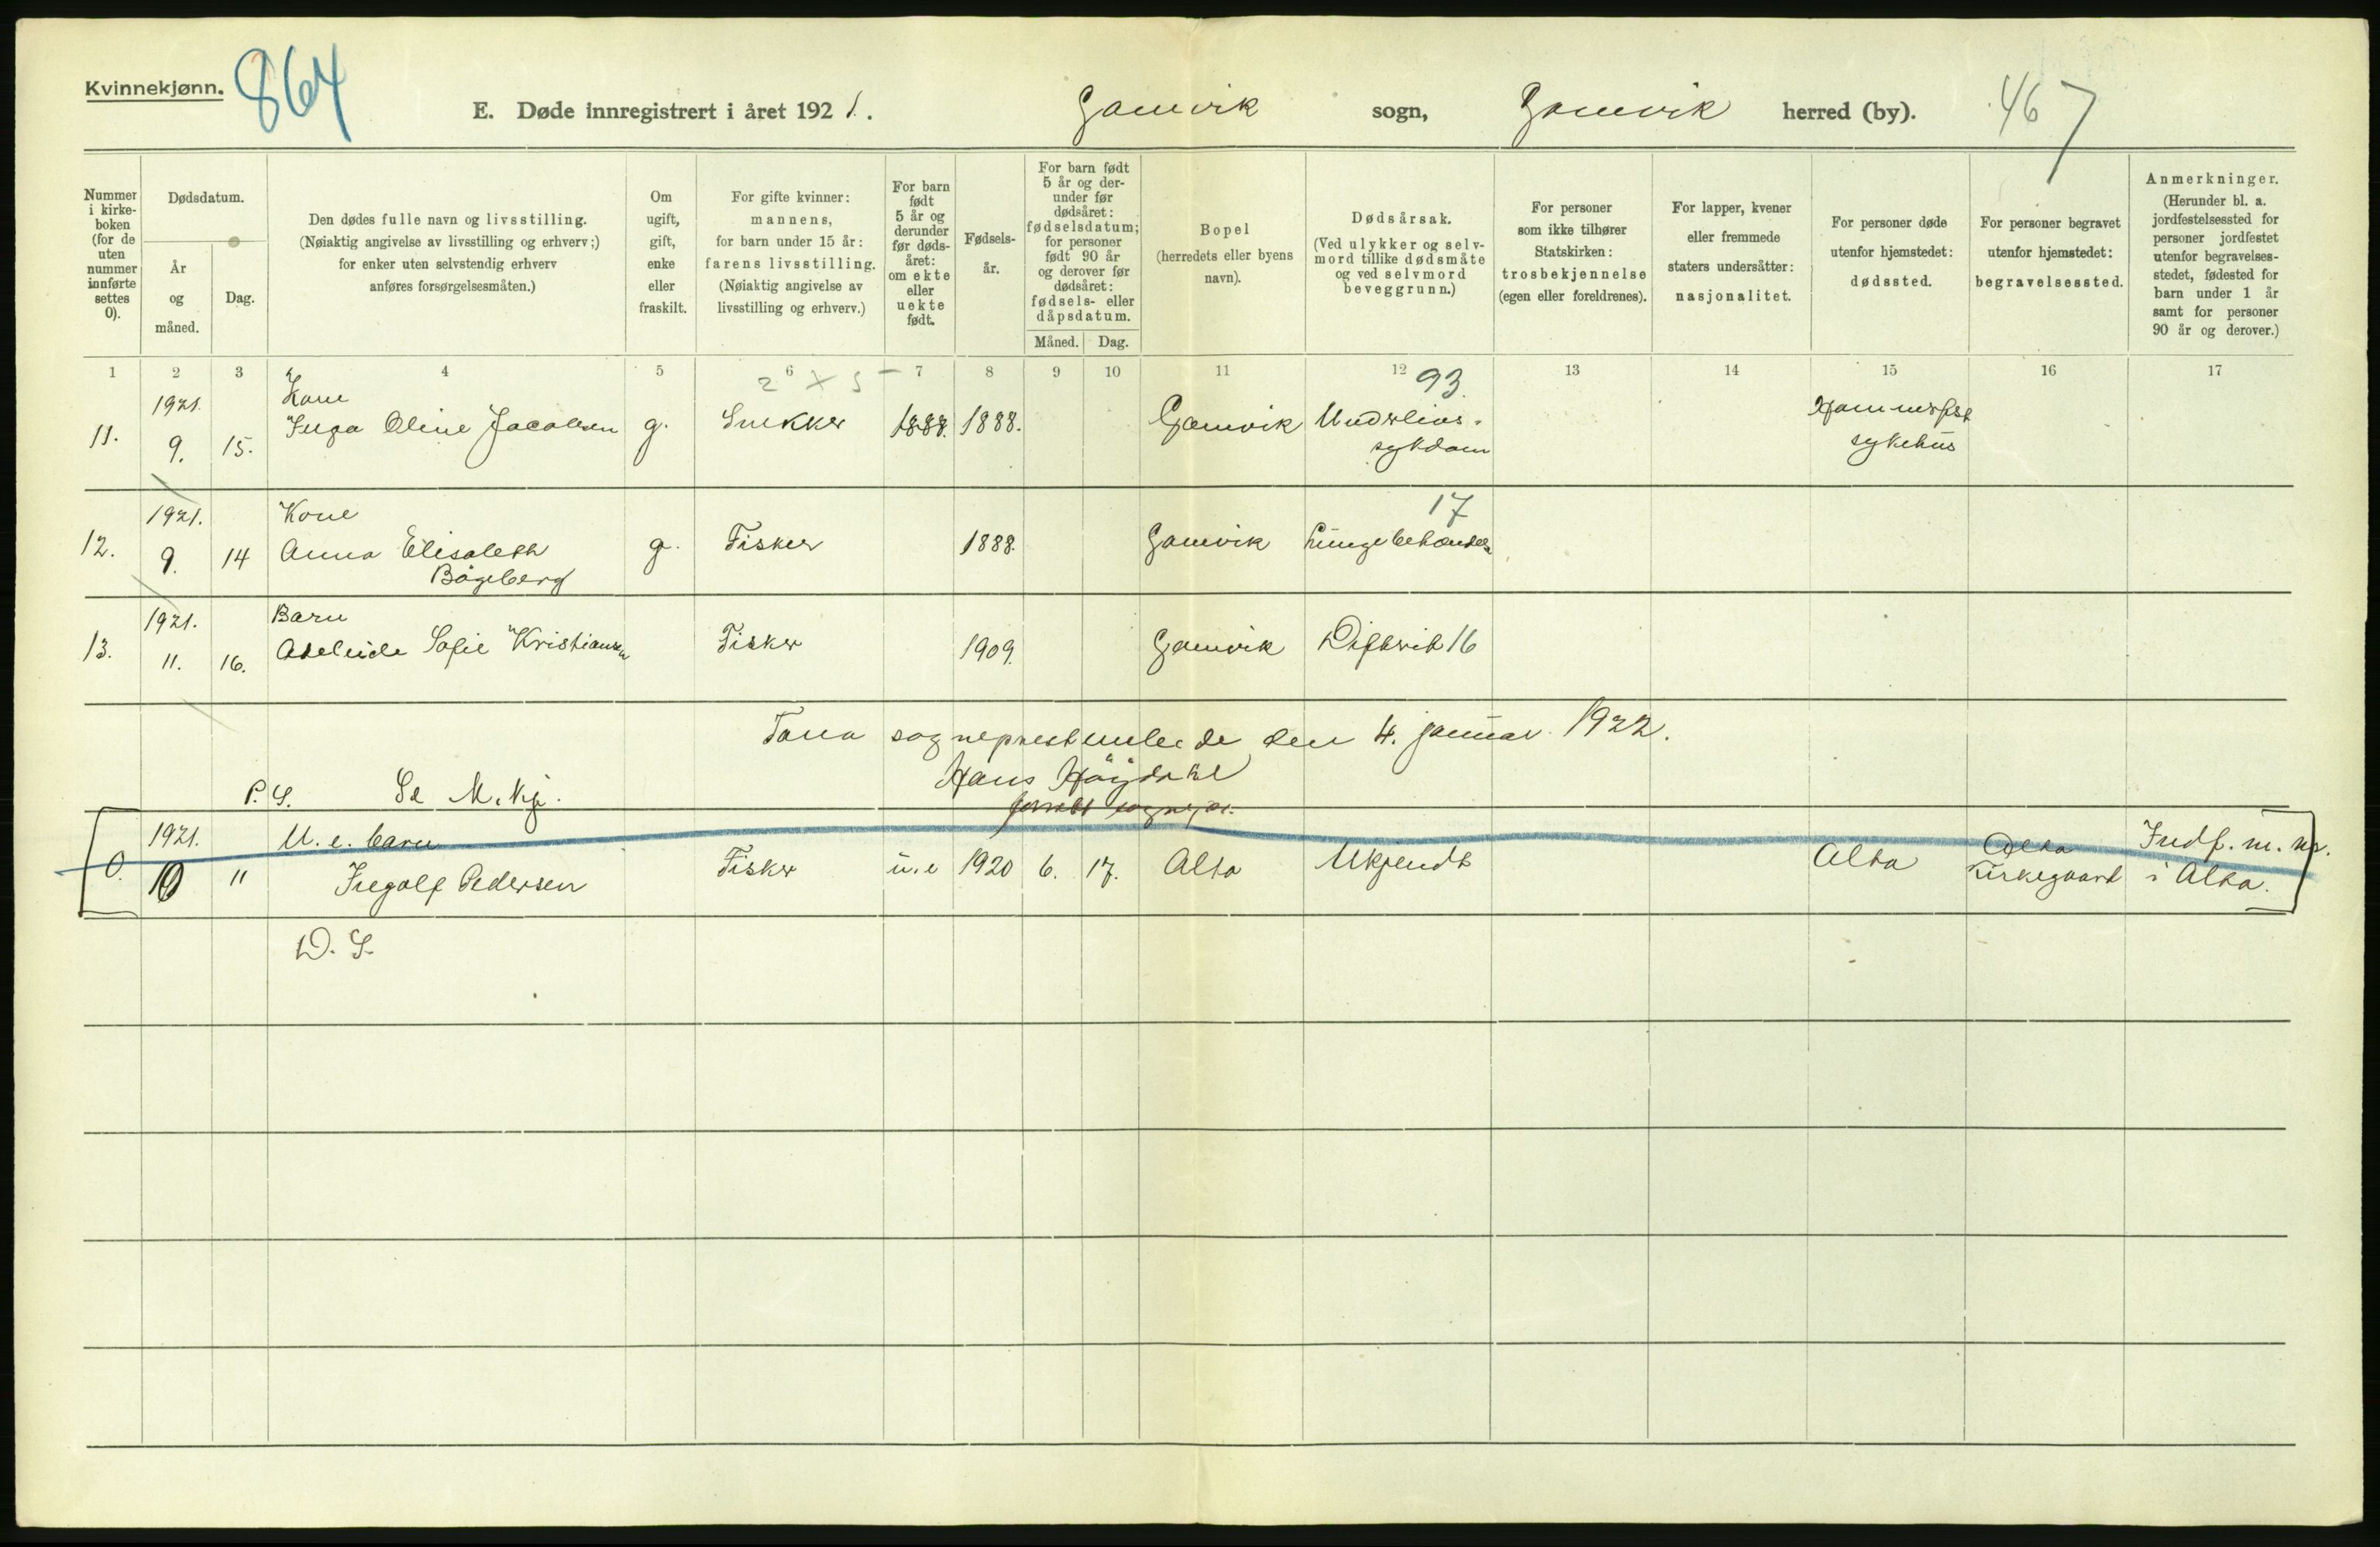 Kvinnekjønn.
864
E. Døde innregistrert i året 1921.
Gamvik sogn, Gamvik herred (by).
467
Nummer i kirke- boken (for de uten nummer innførte settes 0).
Dødsdatum.
År og måned.
Dag.
Den dødes fulle navn og livsstilling.
(Nøiaktig angivelse av livsstilling og erhverv;)
for enker uten selvstendig erhverv
anføres forsørgelsesmåten.)
Om ugift, gift, enke eller fraskilt.
For gifte kvinner:
mannens,
for barn under 15 år:
farens livsstilling.
(Nøiaktig angivelse av
livsstilling og erhverv.)
For barn født 5 år og derunder før døds- året: om ekte eller uekte født.
Fødsels- år.
For barn født 5 år og der- under før dødsåret: fødselsdatum; for personer født 90 år og derover før dødsåret: fødsels- eller dåpsdatum.
Måned. Dag.
Bopel
(herredets eller byens
navn).
Dødsårsak.
(Ved ulykker og selv-
mord tillike dødsmåte
og ved selvmord
beveggrunn.)
For personer
som ikke tilhører
Statskirken:
trosbekjennelse
(egen eller foreldrenes).
For lapper, kvener
eller fremmede
staters undersåtter:
nasjonalitet.
For personer døde
utenfor hjemstedet:
dødssted.
For personer begravet
utenfor hjemstedet:
begravelsessted.
Anmerkninger.
(Herunder bl. a.
jordfestelsessted for
personer jordfestet
utenfor begravelses-
stedet, fødested for
barn under 1 år
samt for personer
90 år og derover.)
1 2 3 4 5 6 7 8 9 10 11 12 13 14 15 16 17
2 X 5 93
1921. Kone Hammerfest
11. 9. 15. Inga Oline Jacobsen g. Snekker 1888. 1888. Gamvik Underlivs-
sykdom sykehus
1921. Kone 17
12. 9. 14 Anna Elisabeth g. Fisker 1888. Gamvik
Bågeberg
1921. Barn
13. 11. 16. Adeleide Sofie Kristiansen Fisker 1909. Gamvik Difterit 16
Tana sogneprestembede den 4. januar 1922.
Hans Høgdahl
P.S. Se M.kj.
1921. U.e. barn Alta Indf. m. nr.
0. 10 11 Ingolf Pedersen Fisker u.e 1920 6. 17. Alta Ukjendt Alta Kirkegaard i Alta.
D. S.